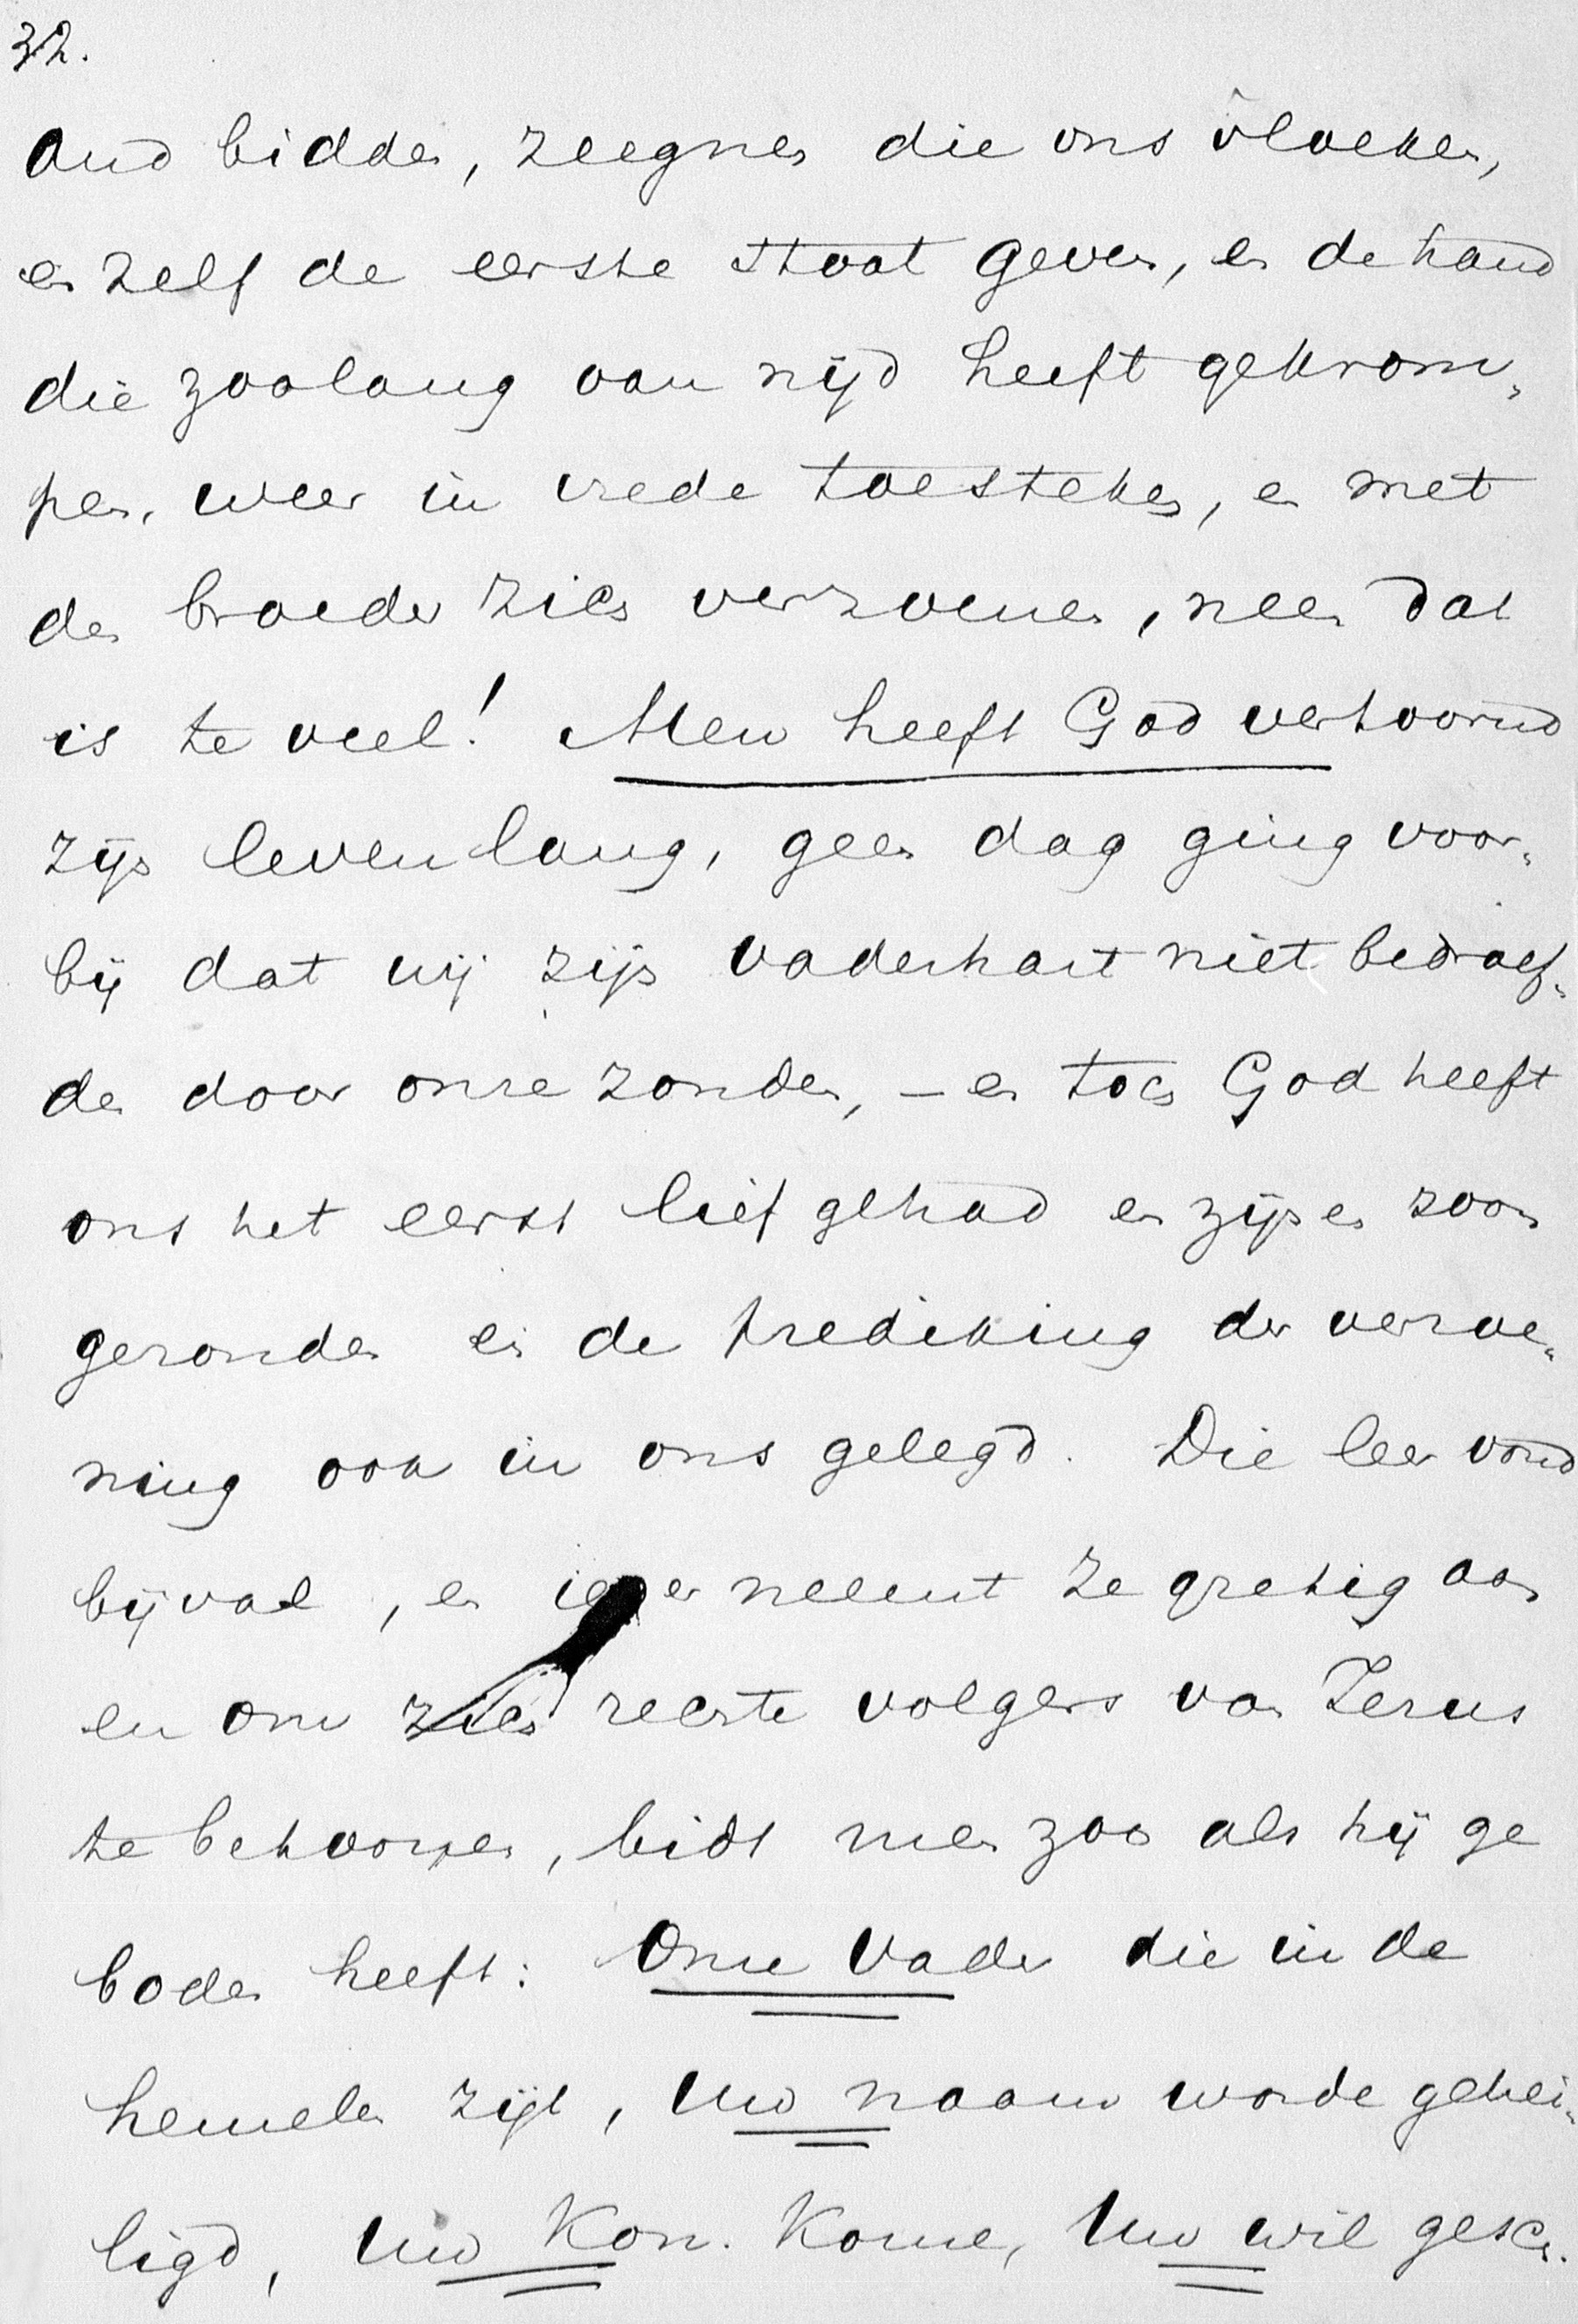 32.
oud bidden, zeegnen die ons vloeken,
en zelf de eerste stoot geven, en de hand
die zoolang van nijd heeft gekrom-
pen, weer in vrede toesteken, en met
den broeder zich verzoenen, neen dat
is te veel! Men heeft God vertoornd
zijn levenlang, geen dag ging voor-
bij dat wij zijn vaderhart niet bedroef-
den door onze zonden, – en toch God heeft
ons het eerst lief gehad en zijnen zoon
gezonden en de prediking der verzoe-
ning ook in ons gelegd. Die leer vond
bijval, en ieder neemt ze gretig aan
en om zich rechte volgers van Jezus
te betoonen, bidt men zoo als hij ge
boden heeft: Onze Vader die in de
hemelen zijt, Uw naam worde gehei-
ligd, Uw Kon. Kome, Uw wil gesch.